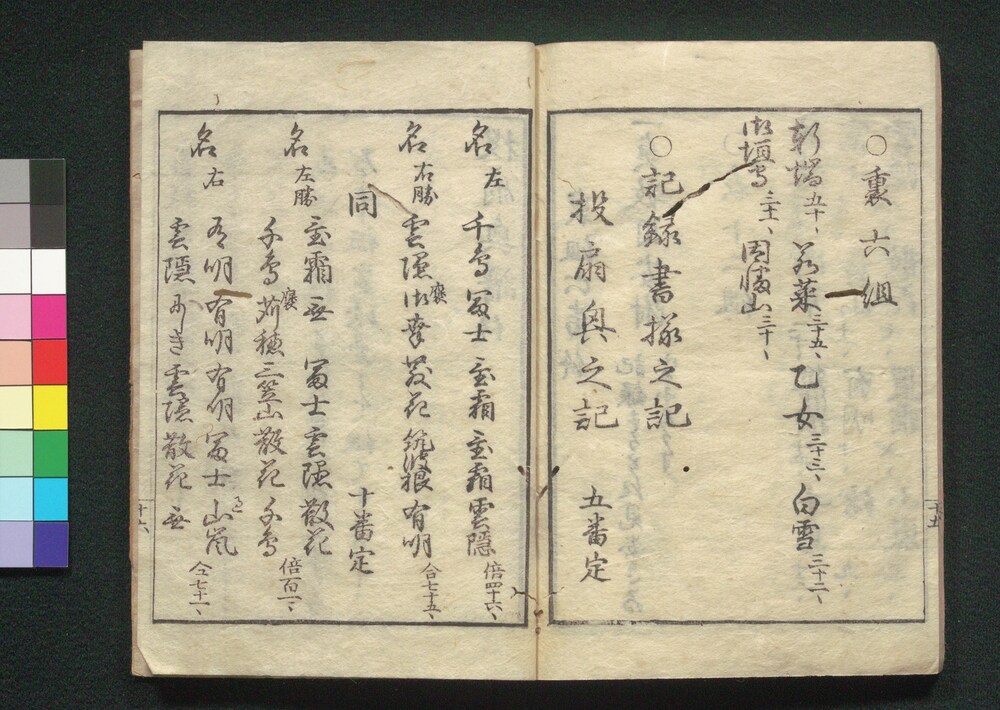 ○裏六組
新場五十、若菜三十五、乙女三十三、白雪三十二、
御垣守三十一、因幡山三十、
○記録書様之記
投扇興之記 五番定
十五
名 左 千鳥 冨士 玉霜 玉霜 雲隠 倍四十六、
名 右勝 雲隠 御幸 慶 散花 筑波根 有明 合七十五、
同 十番定
名 左勝 玉霜 無 冨士 雲隠 散花
千鳥 慶 初穂 三笠山 散花 千鳥 倍百一、
名 右 有明 有明 有明 冨士 山嵐
雲隠 みゆき 雲隠 散花 無 仝七十一、
十六